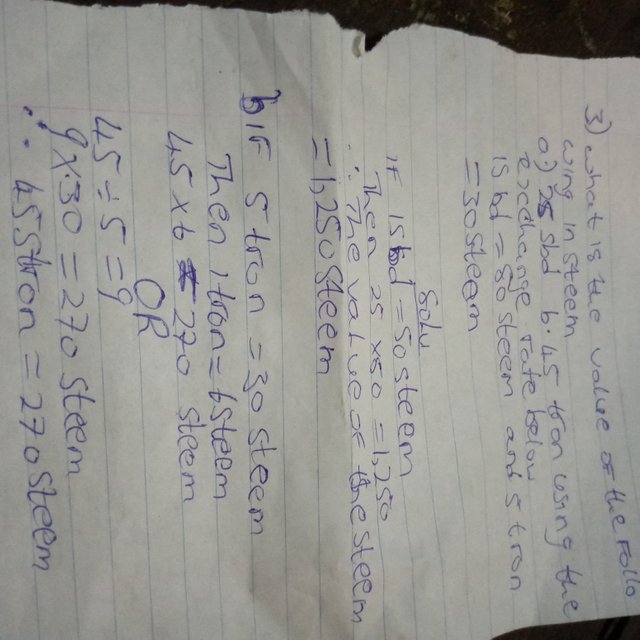 3) what is the value of the follo
wing in steem
a) 25 sbd b. 45 tron using the
exchange rate below
1sbd = 50 steem and 5 tron
= 30 steem
Solu
If 1sbd = 50 steem
Then 25 x 50 = 1,250
∴ The value of the steem
= 1,250 steem
b IF 5 tron = 30 steem
Then 1 tron = 6 steem
45 x 6 = 270 steem
OR
45 ÷ 5 = 9
9 x 30 = 270 steem
∴ 45 tron = 270 steem